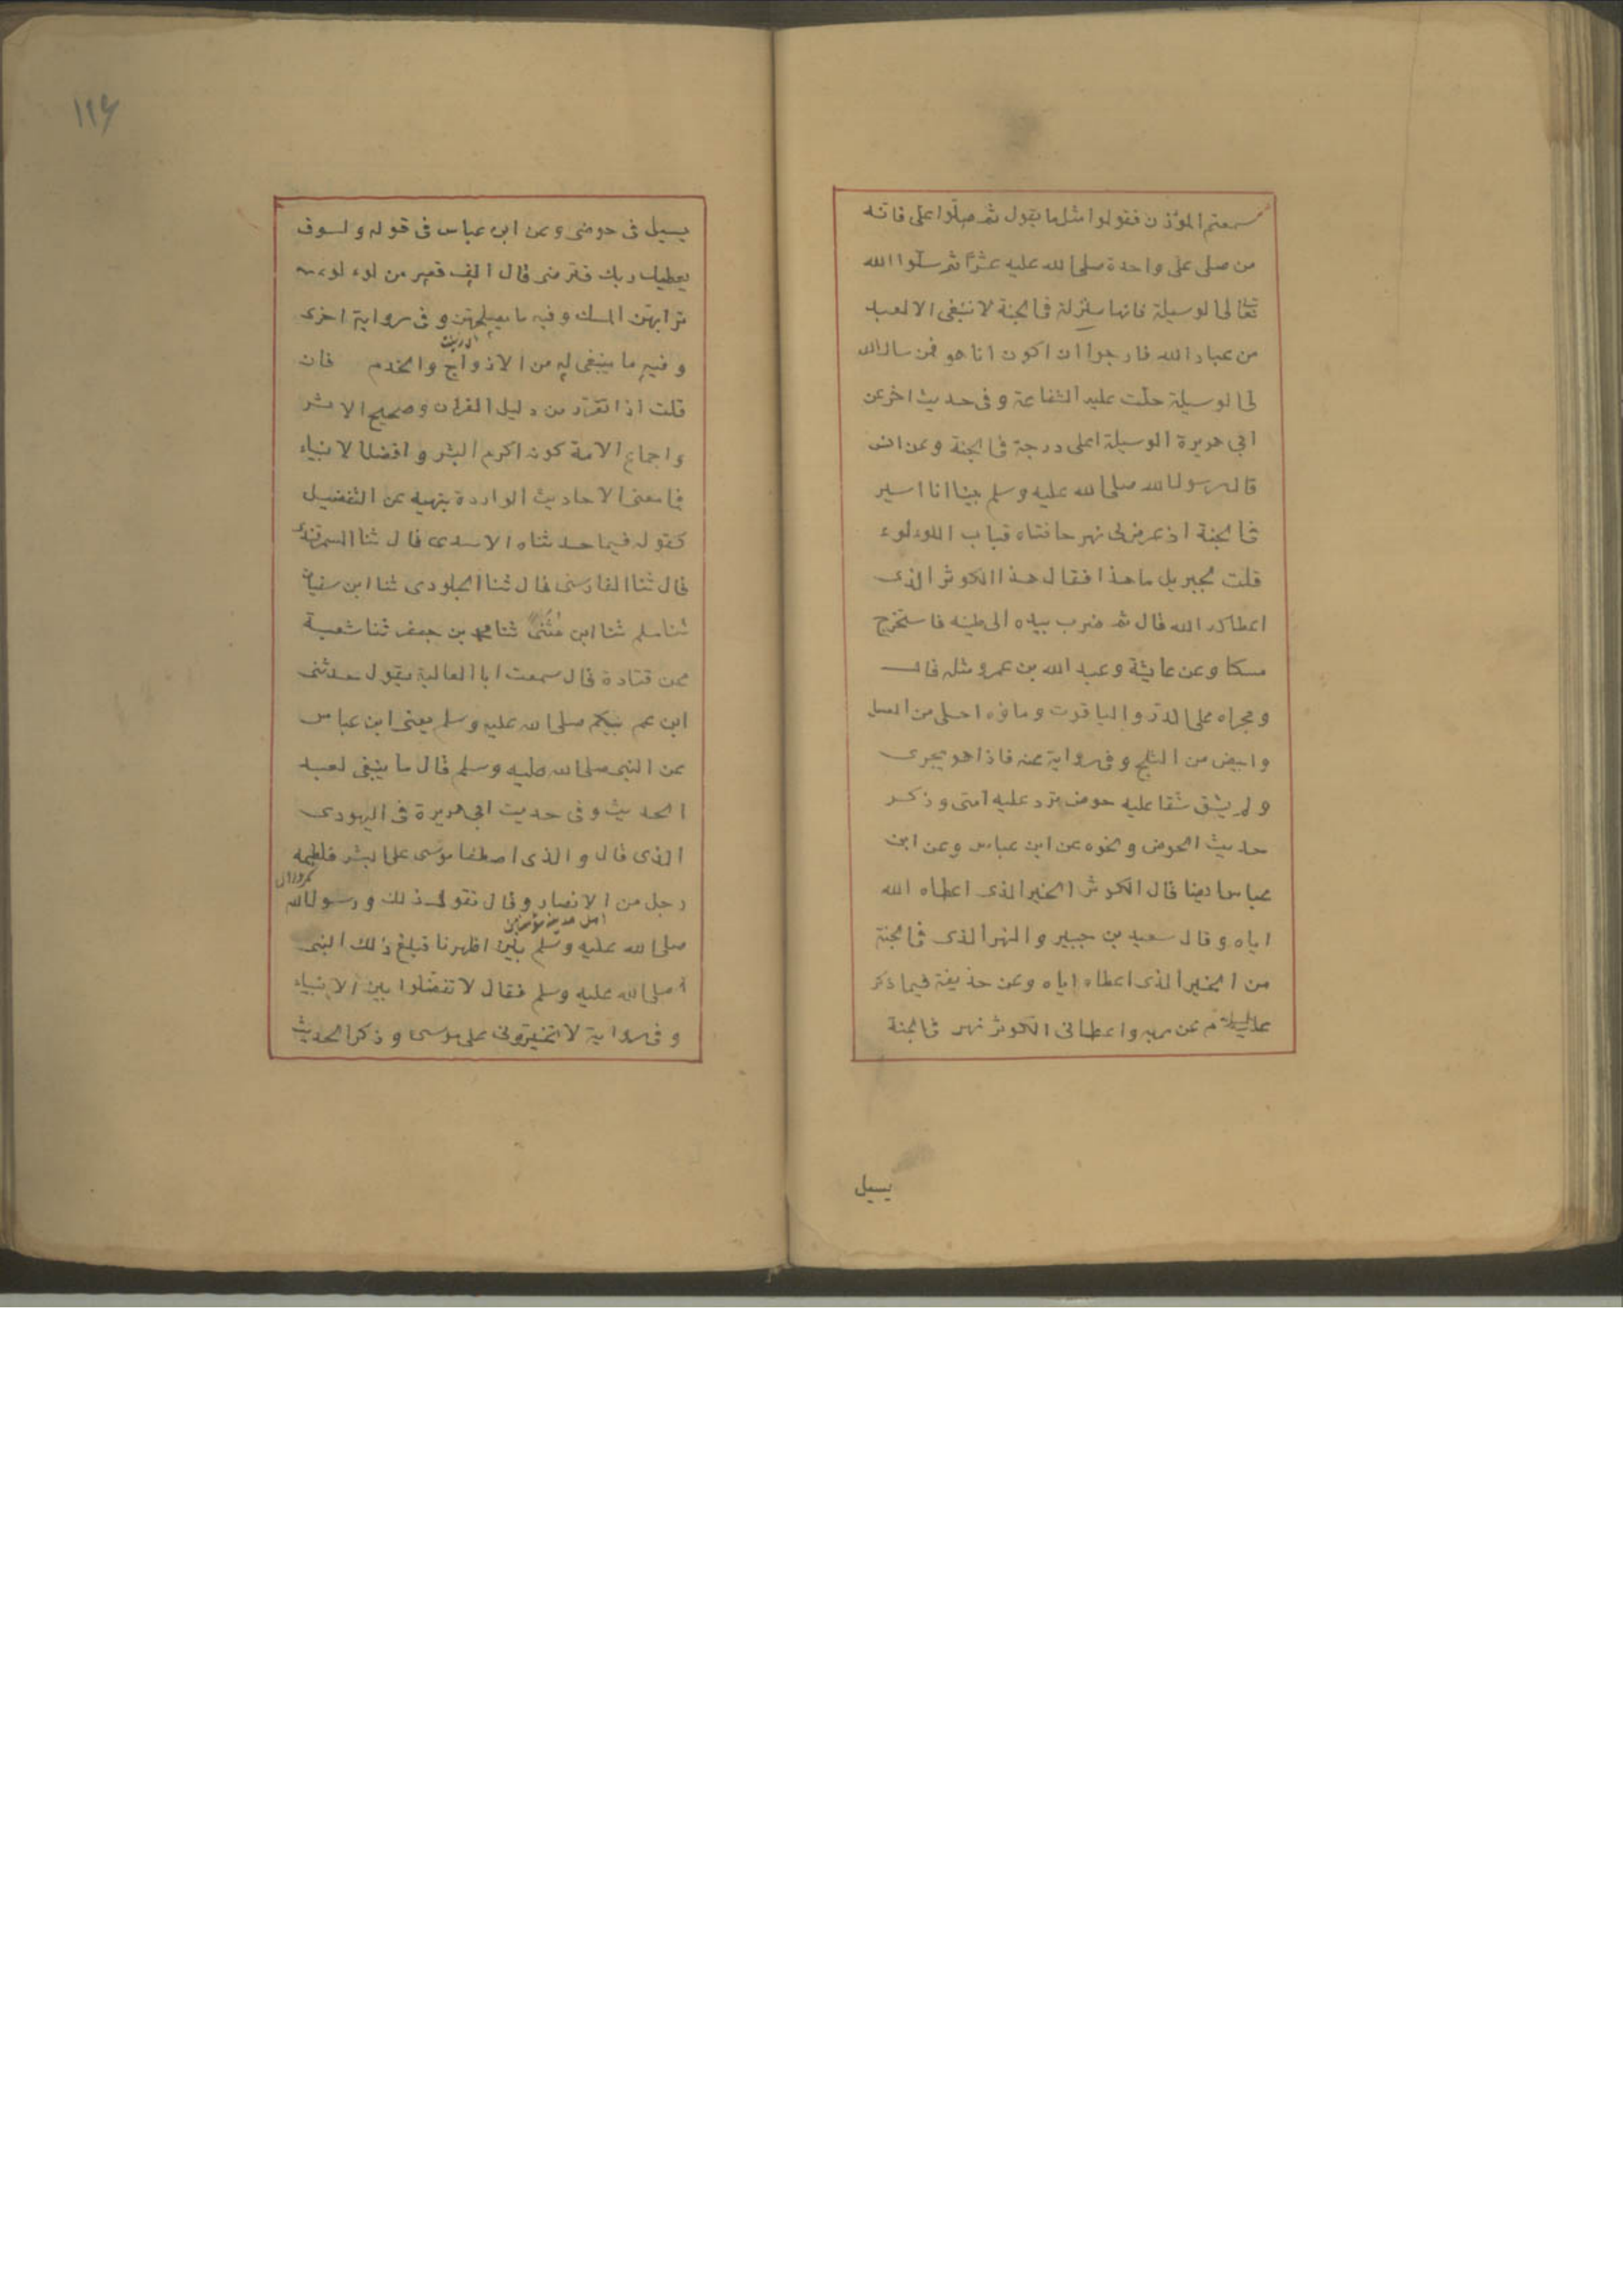 سمعتم المؤذن فقولوا مثل ما يقول ثم صلّوا على فانه
من صلى على واحدة صلى الله عليه عشرًا ثم سلوا الله
تعالى لى الوسيلة فانها منزلة فى الجنة لا تنبغى الا لعبد
من عباد الله فارجوا ان اكون انا هو فمن سال الله
لى الوسيلة حلّت عليه الشفاعة وفى حديث اخر عن
ابى هريرة الوسيلة اعلى درجة فى الجنة وعن انس
قال رسول الله صلى الله عليه وسلم بينا انا اسير
فى الجنة اذ عرض لى نهر حافتاه قباب اللوءلوء
قلت لجبريل ما هذا فقال هذا الكوثر الذى
اعطاكه الله قال ثم ضرب بيده الى طينه فاستخرج
مسكا وعن عايشة وعبد الله بن عمرو مثله قال
ومجراه على الدّر والياقوت وماؤه احلى من العسل
وابيض من الثلج وفى رواية عنه فاذا هو يجرى
ولم يشق شقا عليه حوض ترد عليه امتى وذكر
حديث الحوض ونحوه عن ابن عباس وعن ابن
عباس ايضا قال الكوثر الخير الذى اعطاه الله
اياه وقال سعيد بن جبير والنهر الذى فى الجنة
من الخير الذى اعطاه اياه وعن حذيفة فيما ذكر
عليه السلام عن ربه واعطانى الكوثر نهر فى الجنة
يسيل
١١٤
يسيل فى حوضى وعن ابن عباس فى قوله ولسوف
يعطيك ربك فترضى قال الف قصر من لوء لوء
ترابهنّ المسك وفيه ما يصلحهنّ وفى رواية اخرى
وفيه ما ينبغى له من الازواج والخدم فان
قلت اذا تقرّر من دليل القران وصحيح الاثر
واجماع الامة كونه اكرم البشر وافضل الانبياء
فما معنى الاحاديث الواردة بنهيه عن التفضيل
كقوله فيما حدثناه الاسدى قال ثنا السمرقندى
قال ثنا الفارسى قال ثنا الجلودى ثنا ابن سفيان
ثنا مسلم ثنا ابن مُثنّى ثنا محمد بن جعفر ثنا شعبة
عن قتادة قال سمعت ابا العالية يقول حدثنى
ابن عم نبيكم صلى الله عليه وسلم يعنى ابن عباس
عن النبى صلى الله عليه وسلم قال ما ينبغى لعبد
الحديث وفى حديث ابى هريرة فى اليهودى
الذى قال والذى اصطفا موسى على البشر فلطمه
رجل من الانصار وقال تقول ذلك ورسول الله
صلى الله عليه وسلم بين اظهرنا فبلغ ذلك النبى
صلى الله عليه وسلم فقال لا تفضلوا بين الانبياء
وفى رواية لا تخيّرونى على موسى وذكر الحديث